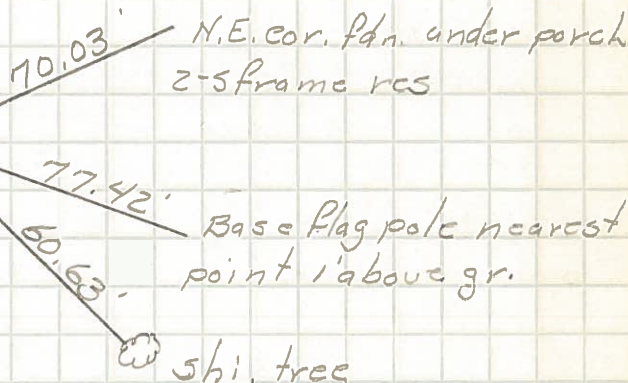 70.03'
N.E. cor. fdn. under porch
2-s frame res
77.42'
Base flag pole nearest
point 1' above gr.
60.63'
shi. tree